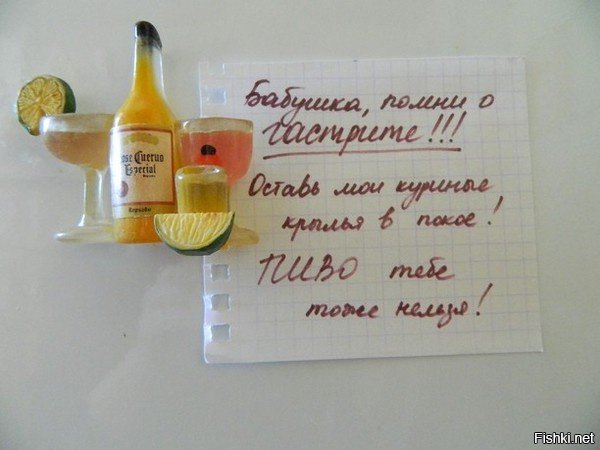 Jose Cuervo
Especial
Бабушка, помни о
гастрите!!!
Оставь мои куриные
крылья в покое!
ПИВО тебе
тоже нельзя!
Fishki.net